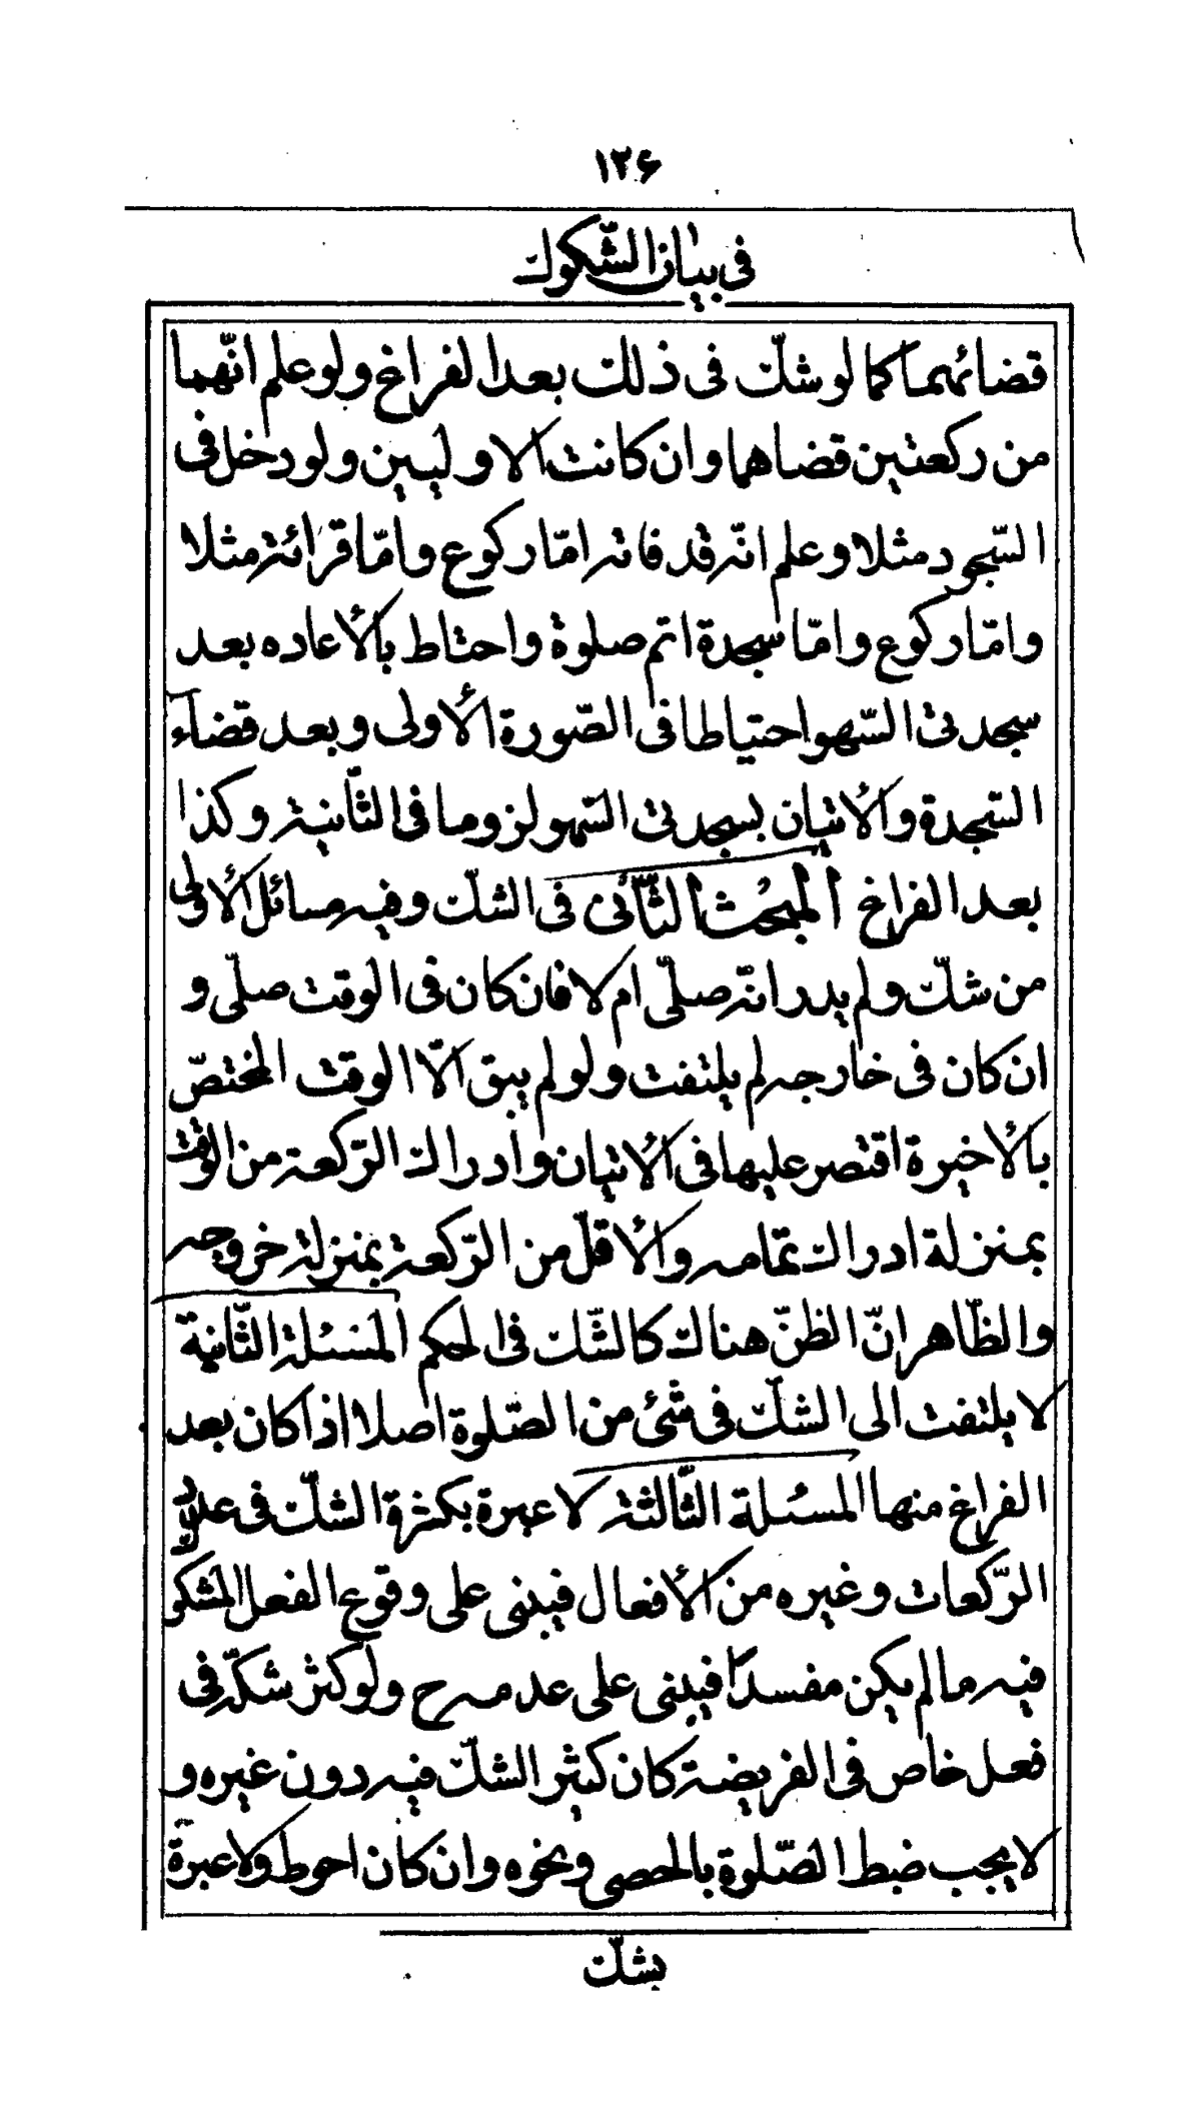 ۱۲۶
فی بیان الشّکوک
قضائهما کما لو شکّ فی ذلک بعد الفراغ ولو علم انّهما
من رکعتین قضاهما وان کانت الاولیین ولو دخل فی
السّجود مثلا وعلم انّه قد فاته امّا رکوع وامّا قرائة مثلا
وامّا رکوع وامّا سجدة اتم صلوة واحتاط بالأعاده بعد
سجدتی السّهو احتیاطا فی الصّورة الأولی وبعد قضاء
السّجدة والأتیان بسجدتی السّهو لزوما فی الثّانیة وکذا
بعد الفراغ المبحث الثّانی فی الشکّ وفیه مسائل الأولی
من شکّ ولم یدر انّه صلّی ام لا فان کان فی الوقت صلّی و
ان کان فی خارجه لم یلتفت ولو لم یبق الّا الوقت المختصّ
بالأخیرة اقتصر علیها فی الأتیان وادراک الرّکعة من الوقت
بمنزلة ادراک تمامه والأقلّ من الرّکعة بمنزلة خروجه
والظّاهر انّ الظنّ هناک کالشّک فی الحکم المسئلة الثّانیة
لا یلتفت الی الشکّ فی شئ من الصّلوة اصلا اذا کان بعد
الفراغ منها المسئلة الثّالثة لا عبرة بکثرة الشکّ فی عدد
الرّکعات وغیره من الأفعال فیبنی علی وقوع الفعل المشکو
فیه ما لم یکن مفسدًا فیبنی علی عدمه ح ولو کثر شکّه فی
فعل خاص فی الفریضة کان کثیر الشکّ فیه دون غیره و
لا یجب ضبط الصّلوة بالحصی ونحوه وان کان احوط ولا عبرة
بشکّ